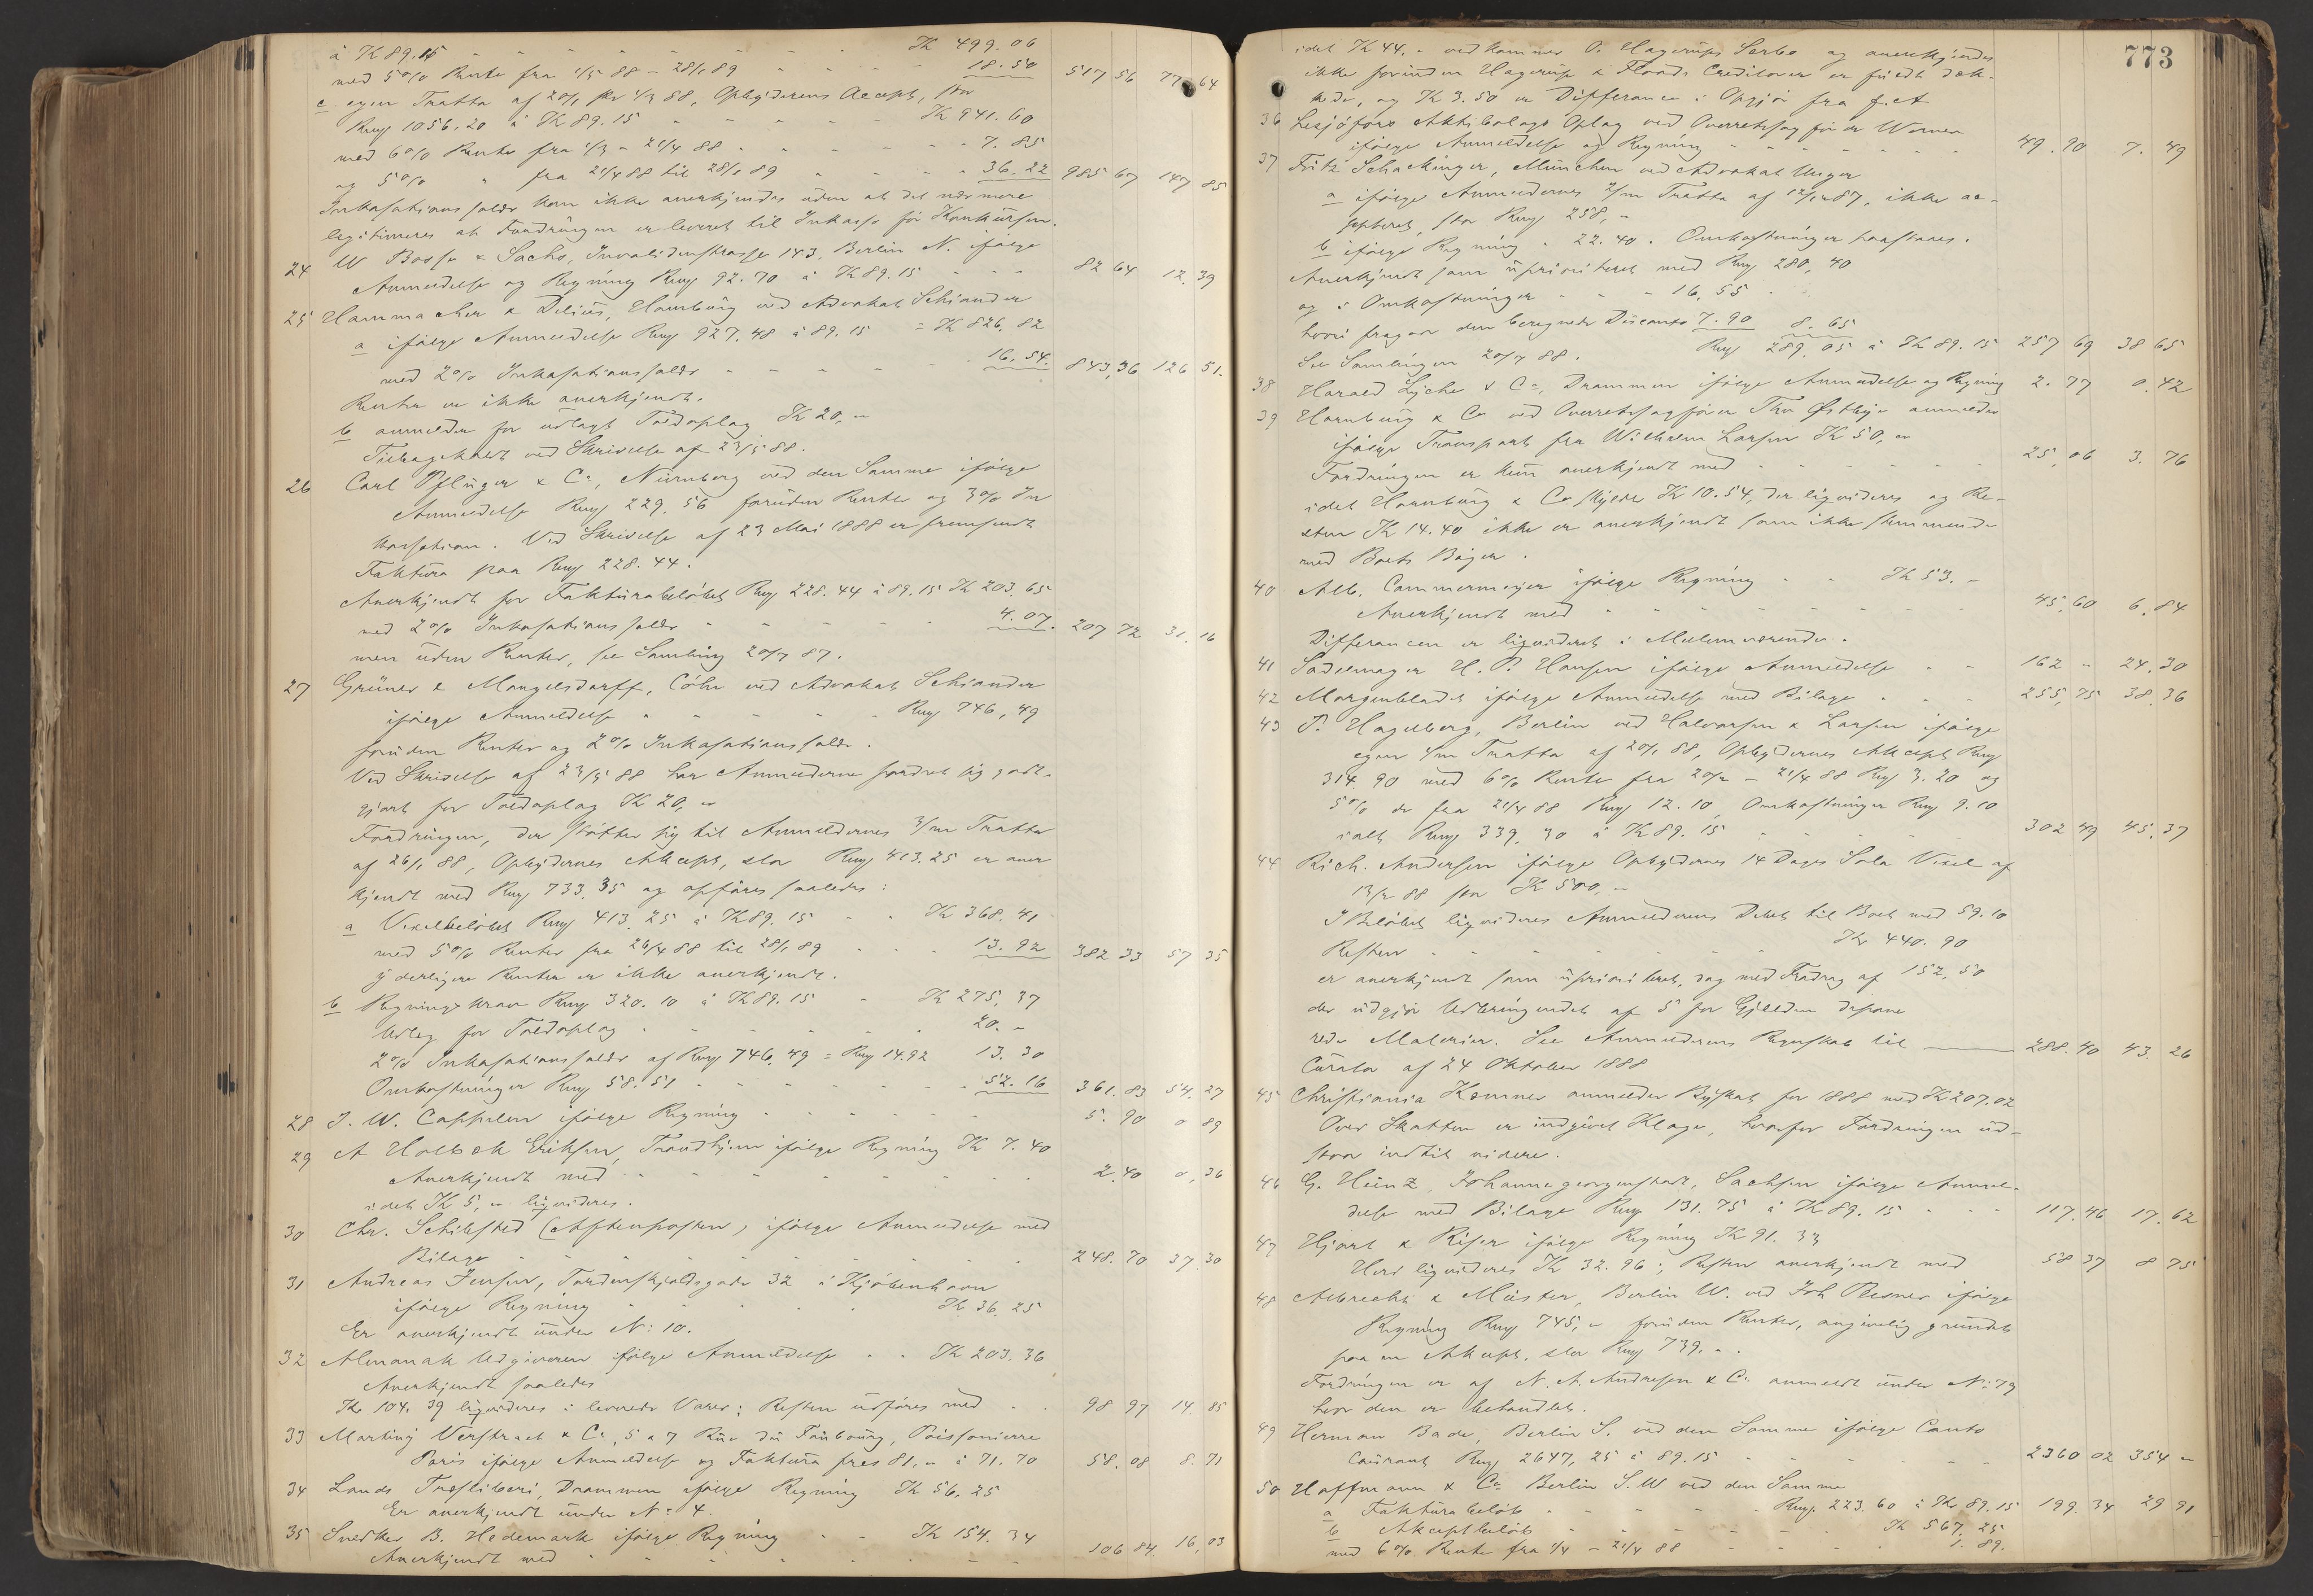 à Kr 89.15 - - - - - - - Kr 499.06
med 5% Rente fra 1/5 88 - 28/1 89 - - - 18.50 517 56 77 64
c egen Tratta af 20/1 pr 1/3 88, Opbyderens Accept, stor
Rmg 1056.20 à Kr 89.15 - - - - Kr 941.60
med 6% Rente fra 1/3 - 21/4 88 - - - - 7.85
og 5% " fra 21/4 88 til 28/1 89 - - - 36.22 985 67 147 85
Inkassationssalær kan ikke anerkjendes uden at det nærmere
legitimeres at Fordringen er leveret til Inkasso før Konkursen.
24 W Bosse & Sachs, Invalidenstrasse 143, Berlin N. ifølge
Anmeldelse og Regning Rmg 92.70 à Kr 89.15 - - - 82 64 12.39
25 Hammacher & Delius, Hamburg ved Advokat Schiander
a ifølge Anmeldelse Rmg 927.48 à 89.15 = Kr 826,82
med 2% Inkassationssalær - - - - - 16.54. 843,36 126 51.
Renter er ikke anerkjendt.
b anmelder for udlagt Toldoplag Kr 20,-
Tilbagekaldt ved Skrivelse af 23/5 88.
26 Carl Pflüger & Co, Nürnberg ved den Samme ifølge
Anmeldelse Rmg 229.56 foruden Renter og 3% In
kassation. Ved Skrivelse af 23 Mai 1888 er fremsendt
Faktura paa Rmg 228.44.
Anerkjendt for Fakturabeløbet Rmg 228.44 à 89.15 Kr 203.65
med 2% Inkassationssalær - - - - - 4.07. 207 72 31.16
men uden Renter, se Samling 20/7 87.
27 Grüner & Mangelsdorff, Cöln ved Advokat Schiander
ifølge Anmeldelse - - - - - Rmg 746,49
foruden Renter og 2% Inkassationssalær.
Ved Skrivelse af 23/5 88 har Anmelderne fordret sig godt-
gjort for Toldoplag Kr 20,-
Fordringen, der støtter sig til Anmeldernes 3/m Tratta
af 26/1 88, Opbydernes Akcept, stor Rmg 413.25 er aner
kjendt med Rmg 733.35 og opføres saaledes:
a Vexelbeløbet Rmg 413.25 à Kr 89.15 - - Kr 368.41
med 5% Renter fra 26/4 88 til 28/1 89 - - - 13.92 382 33 57 35
yderligere Renter er ikke anerkjendt.
b Regningskrav Rmg 320.10 à Kr 89.15 - Kr 275,37
Udlæg for Toldoplag - - - - - - 20.-
2% Inkassationssalær af Rmg 746,49 = Rmg 14.92 13.30
Omkostninger Rmg 58.51 - - - - - - 52.16 361.83 54.27
28 J. W. Cappelen ifølge Regning - - - - - 5.90 0 89
29 A Holbæk Eriksen, Trondhjem ifølge Regning Kr 7.40
Anerkjendt med - - - - - - - 2.40 0,36
idet Kr 5,- ligvideres.
30 Chr. Schibsted (Aftenposten) ifølge Anmeldelse med
Bilage - - - - - - - - 248.70 37.30
31 Andreas Jensen, Tordenskjoldsgade 32 i Kjöbenhavn
ifølge Regning - - - - - Kr 36.25
Er anerkjendt under No 10.
32 Almanak Udgiveren ifølge Anmeldelse - - Kr 203.36
Anerkjendt saaledes
Kr 104.39 ligvideres i leverede Varer; Resten udføres med - - 98 97 14.85
33 Martiny Verstraet & Co, 5 a 7 Rue du Faubourg, Poissonierre
Paris ifølge Anmeldelse og Faktura frcs 81,- à 71.70 58.08 8.71
34 Lands Træsliberi, Drammen ifølge Regning Kr 56.25
Er anerkjendt under No 4.
35 Snedker B. Hedemark ifølge Regning - - Kr 154.34
Anerkjendt med - - - - - - - 106 84 16,03
773
idet Kr 44.- vedkommer O. Hagerups Særbo og anerkjendes
ikke forinden Hagerup & Floods Creditorer er fuldt dæk-
kede, og Kr 3.50 er Difference i Opgjør fra f. A
36 Lesjöfors Aktiebolags Oplag ved Overretssagfører Werner
ifølge Anmeldelse og Regning - - - - - 49.90 7.49
37 Fritz Schachinger, München ved Advokat Unger
a ifølge Anmeldernes 2/m Tratta af 12/12 87, ikke ac-
cepteret, stor Rmg 258,-
b ifølge Regning " 22.40. Omkostninger paastaaes.
Anerkjendt som uprioriteret med Rmg 280,40
og i Omkostninger - - - 16,55
hvori fragaar den beregnede Disconto 7.90 8.65
See Samlingen 20/7 88. Rmg 289.05 à Kr 89.15 257 69 38 65
38 Harald Lyche & Co, Drammen ifølge Anmeldelse og Regning 2.77 0.42
39 Hornburg & Co ved Overretssagfører Thv Østbye anmelder
ifølge Transport fra Wilhelm Larsen Kr 50,-
Fordringen er kun anerkjendt med - - - - - 25,06 3.76
idet Hornburg & Co skylder Kr 10.54, der ligvideres og Re-
sten Kr 14.40 ikke er anerkjendt som ikke stemmende
med Boets Bøger.
40 Alb. Cammermeyer ifølge Regning - - Kr 53.-
Anerkjendt med - - - - - - - 45,60 6.84
Differencen er ligvideret i Mellemværende.
41 Sadelmager H. P. Hansen ifølge Anmeldelse - - 162 - 24.30
42 Morgenbladet ifølge Anmeldelse med Bilage - - - 255,75 38.36
43 P. Hagelberg, Berlin ved Halvorsen & Larsen ifølge
egen 1/m Tratta af 20/1 88, Opbydernes Akcept Rmg
314.90 med 6% Rente fra 20/2 - 21/4 88 Rmg 3.20 og
5% do fra 21/4 88 Rmg 12.10, Omkostninger Rmg 9.10
ialt Rmg 339,30 à Kr 89.15 - - - - - 302 49 45.37
44 Rich. Andersen ifølge Opbydernes 14 Dages Sola Vexel af
13/2 88 stor Kr 500,-
I Beløbet ligvideres Anmelderens Debet til Boet med 59.10
Resten - - - - - - Kr 440.90
er anerkjendt som uprioriteret, dog med Fradrag af 152,50
der udgjør Udbringendet af 5 for Gjælden depone
rede Malerier. See Anmelderens Regnskab til 288.40 43.26
Curator af 24 Oktober 1888
45 Christiania Kemner anmelder Byskat for 1888 med Kr 207.02
Over Skatten er indgivet Klage, hvorfor Fordringen ud-
staar indtil videre.
46 G. Heinz, Johanngeorgenstadt, Sachsen ifølge Anmel-
delse med Bilage Rmg 131.75 à Kr 89.15 - - - 117.46 17.62
47 Hjort & Riser ifølge Regning Kr 91.33
Herd ligvideres Kr 32.96; Resten anerkjendt med 58 37 8 75
48 Albrecht & Müster, Berlin W. ved Joh Plesner ifølge
Regning Rmg 745,- foruden Renter, angivelig grundet
paa en Akcept, stor Rmg 739.-.
Fordringen er af N. A. Andresen & Co anmeldt under No 79
hvor den er behandlet.
49 Herman Bade, Berlin S. ved den Samme ifølge Conto
Courant Rmg 2647,25 à 89.15 - - - - - 2360 02 354 -
50 Hoffmann & Co Berlin S.W ved den Samme
a Fakturabeløb - - - - - Rmg. 223.60 à Kr 89.15 199.34 29 91
b Akceptbeløb - - - - - - Kr 567.25
med 6% Rente fra 1/4 - 21/4 88 - - - - 1.89.